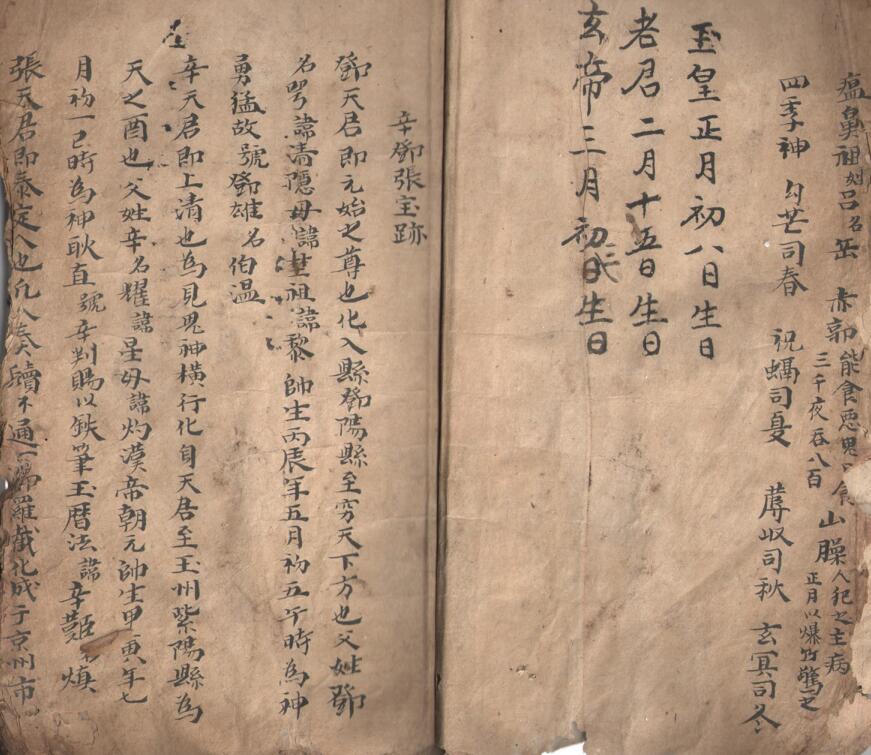 瘟㒷祖姓呂名岳 赤郭能食惡鬼
三千夜吞八百
山臊人犯之主病
正月以爆竹驚之
四季神 勾芒司春 祝螎司夏 蓐收司秋 玄冥司冬
玉皇正月初八日生日
老君二月十五日生日
玄帝三月初三日生日
辛鄧張宝跡
鄧天君即元始之尊也化入縣鄧陽縣至穷天下方也父姓鄧
名 諱清隱母諱 祖諱黎帥生丙辰年五月初五午時為神
勇猛故號鄧雄名伯温
辛天君即上清也為見鬼神横行化自天居至玉州紫陽縣為
天之酉也父姓辛名耀諱星母諱灼漠帝朝元帥生甲寅年七
月初一巳時為神耿直號辛判賜以鉄筆玉曆法諱辛
張天君即泰定人也凡人奏牘不通 羅截化成于京州市